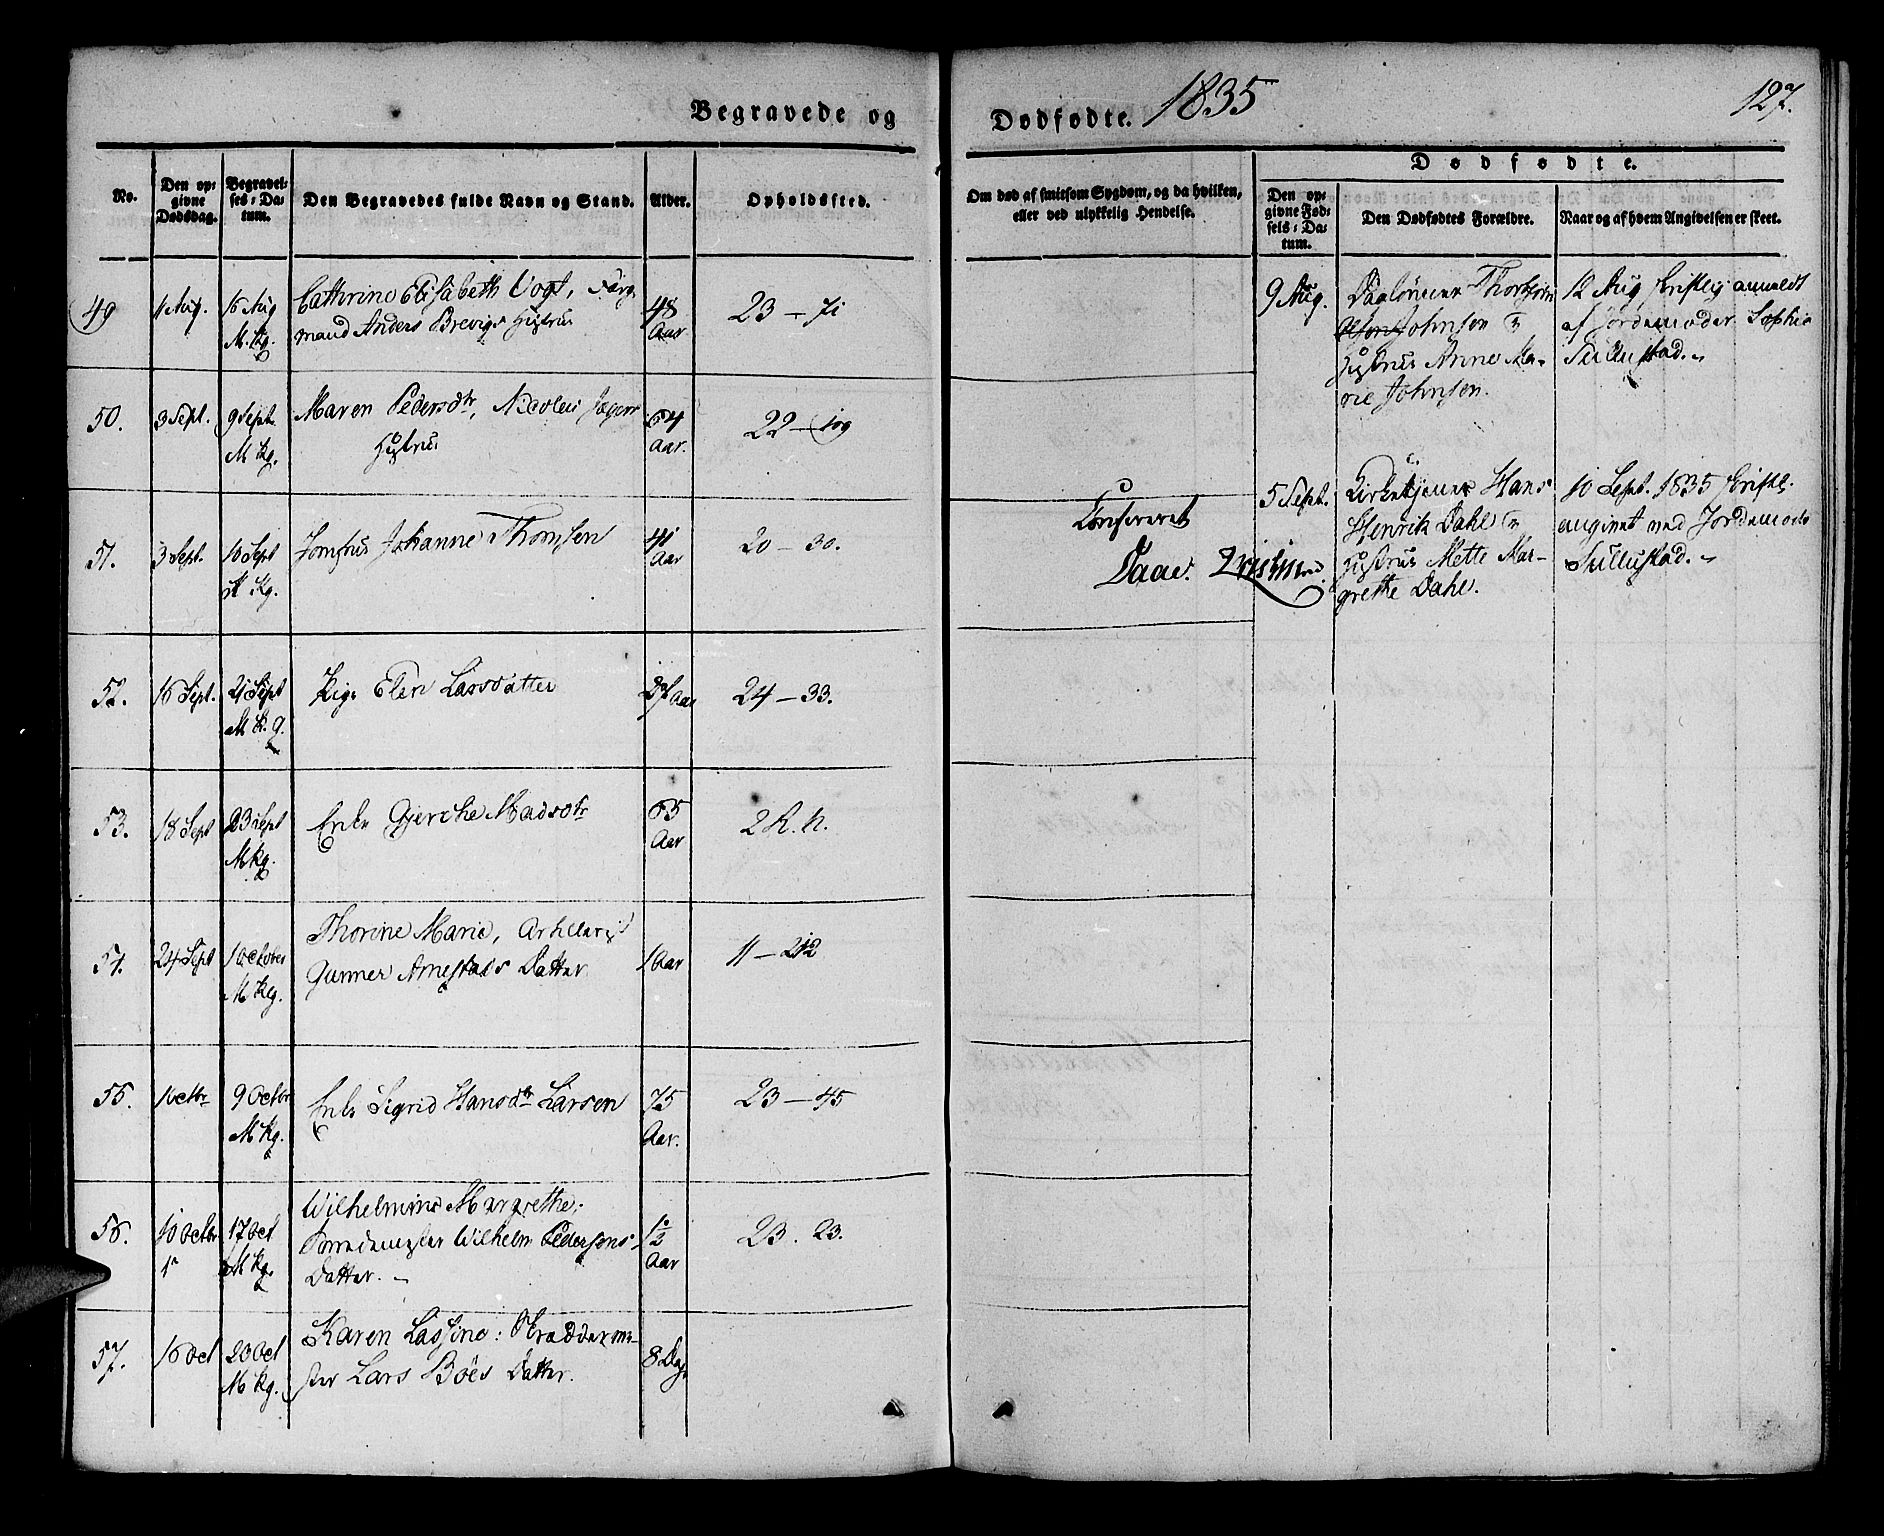 Begravede og
No.
Den opgivne Dødsdag.
Begravelses-Datum.
Den Begravedes fulde Navn og Stand.
Alder.
Opholdssted.
49
11 Aug.
16 Aug
M. Kg.
Cathrine Elisabeth Vogt,
mand Anders Brevigs Hustrue
48
Aar
23 – 71
50.
3 Sept.
9 Sept.
M Kg.
Maren Pedersdtr, Nicolai
Hustrue
64
Aar.
22 – 109
51.
3 Sept.
10 Sept
M. Kg.
Jomfrue Johanne Thomsen
41
Aar
20 – 30.
52.
16 Sept.
21 Sept
M K. g.
Pige Elen Larsdatter
27 Aar
24 – 33.
53.
18 Sept
23 Sept
M Kg.
Enke Gjerche Madsdtr
65
Aar
2 R. N.
54.
24 Sept
1 October
M Kg.
Thorine Marie, Artillerist
Gunner Arnestads Datter
1 Aar
11 – 212
55.
1 Octbr
9 Octbr
M Kg.
Enke Sigrid Hansdtr Larsen
75
Aar.
23 – 45
56.
10 Octbr
17 Oct
M Kg.
Wilhelmine Margrethe,
Wilhelm Pedersens
Datter. –
1/2
Aar
23. 23.
57.
16 Oct
20 Oct
M Kg.
Karen Lassine: Skræddermester Lars Böes Datter.
8 Dage
Dødfødte. 1835
127.
Om død af smitsom Sygdom, og da hvilken,
eller ved ulykkelig Hendelse.
Dødfødte.
Den opgivne Fødsels-Datum.
Den Dødfødtes Forældre.
Naar og af hvem Angivelsen er skeet.
9 Aug.
Dagløner
Johnsen
Hustrue Anne Marie Johnsen.
12 Aug skriftlig anmeldt
af Jordemoder Sophie
Sullustad. –
Conferert
Daae.
5 Sept.
Kirketjener Hans
Henrik Dahl
Hustrue Mette Margrethe Dahl.
10 Sept. 1835 skriftl.
angivet ved Jordemoder
Sullustad. –